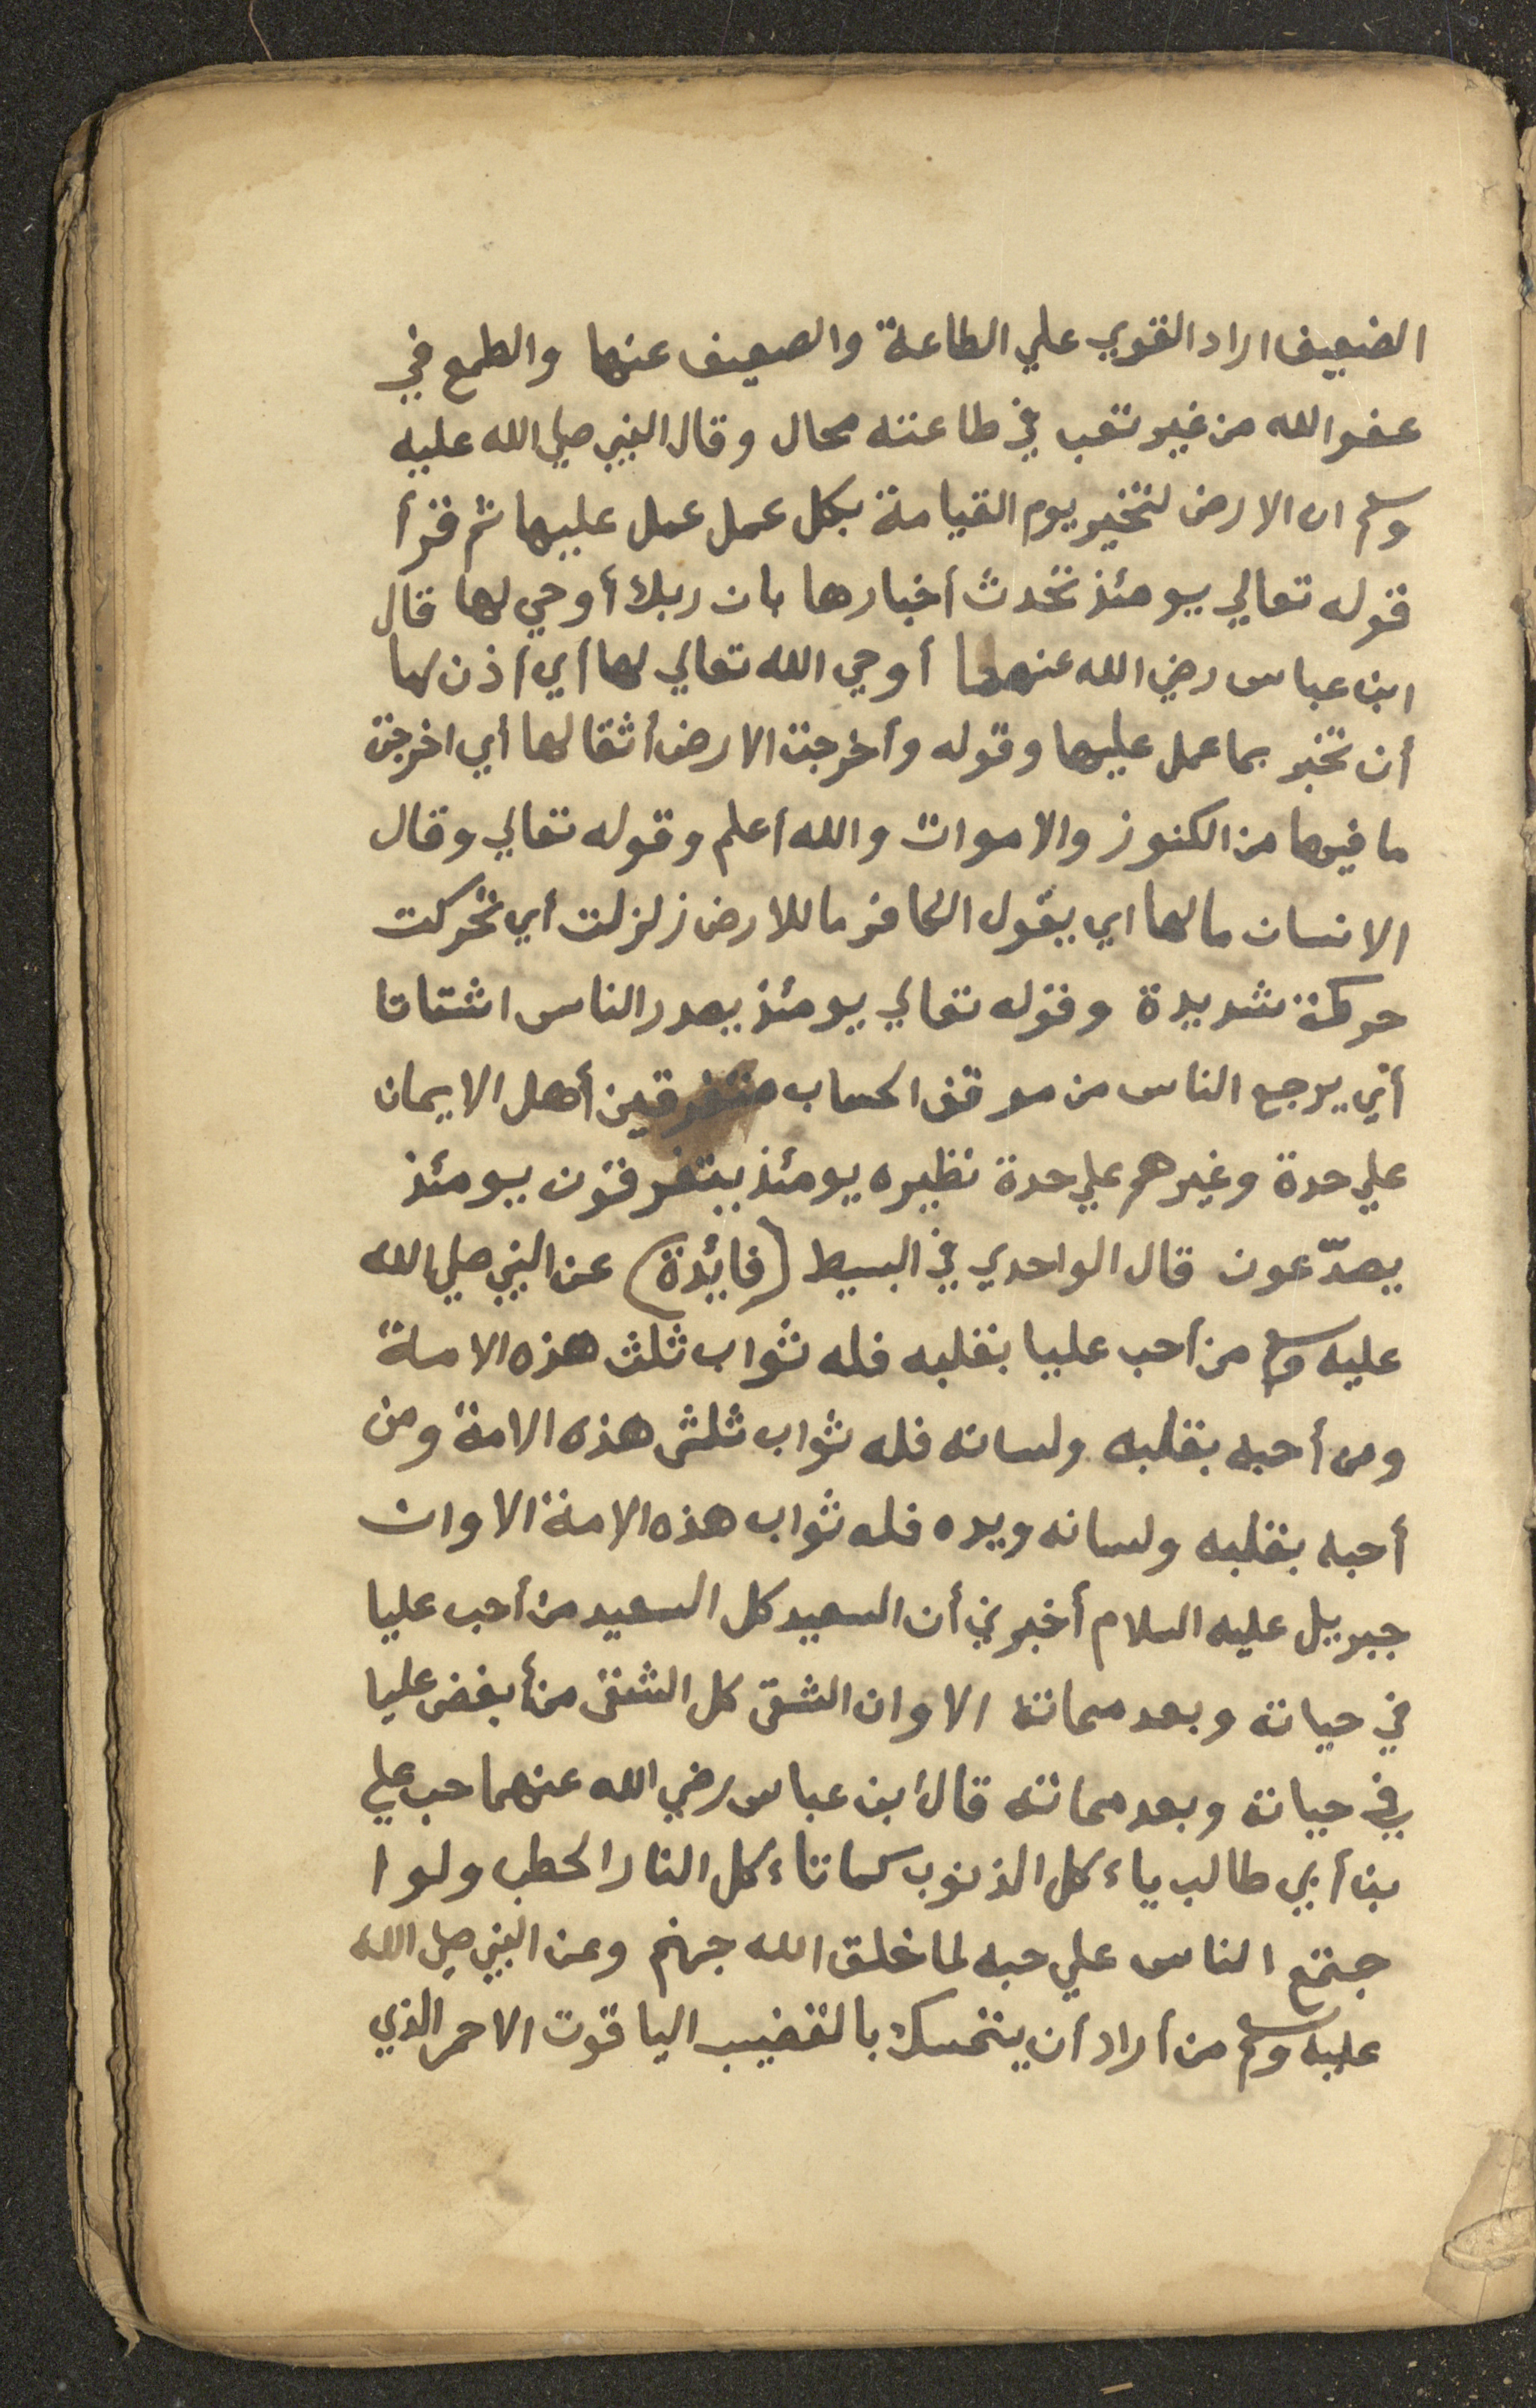 الضعيف اراد القوي علي الطاعة والضعيف عنها والطمع في
عفو الله من غير تعب في طاعته محال وقال النبي صلي الله عليه
وسلم ان الارض لتخبر يوم القيامة بكل عمل عمل عليها ثم قرأ
قوله تعالي يومئذ تحدث أخبارها بان ربك أوحي لها قال
ابن عباس رضي الله عنهما أوحي الله تعالي لها أي أذن لها
أن تخبر بما عمل عليها وقوله وأخرجت الارض أثقالها أي اخرجت
ما فيها من الكنوز والاموات والله أعلم وقوله تعالي وقال
الانسان مالها اي يقول الكافر ما للارض زلزلت أي تحركت
حركة شديدة وقوله تعالي يومئذ يصدر الناس اشتاتا
أي يرجع الناس من موقف الحساب متفرقين أهل الايمان
علي حدة وغيرهم علي حدة نظيره يومئذ يتفرقون يومئذ
يصدّعون قال الواحدي في البسيط (فائدة) عن النبي صلي الله
عليه وسلم من أحب عليا بقلبه فله ثواب ثلث هذه الامة
ومن أحبه بقلبه ولسانه فله ثواب ثلثى هذه الامة ومن
أحبه بقلبه ولسانه ويده فله ثواب هذه الامة الا وان
جبريل عليه السلام أخبرني أن السعيد كل السعيد من أحب عليا
في حياته وبعد مماته الا وان الشقى كل الشقى من أبغض عليا
في حياته وبعد مماته قال ابن عباس رضي الله عنهما حب علي
بن أبي طالب ياءكل الذنوب كما تاءكل النار الحطب ولو ا
جتمع الناس علي حبه لما خلق الله جهنم وعن النبي صلي الله
عليه وسلم من أراد أن يتمسك بالقضيب الياقوت الاحمر الذي